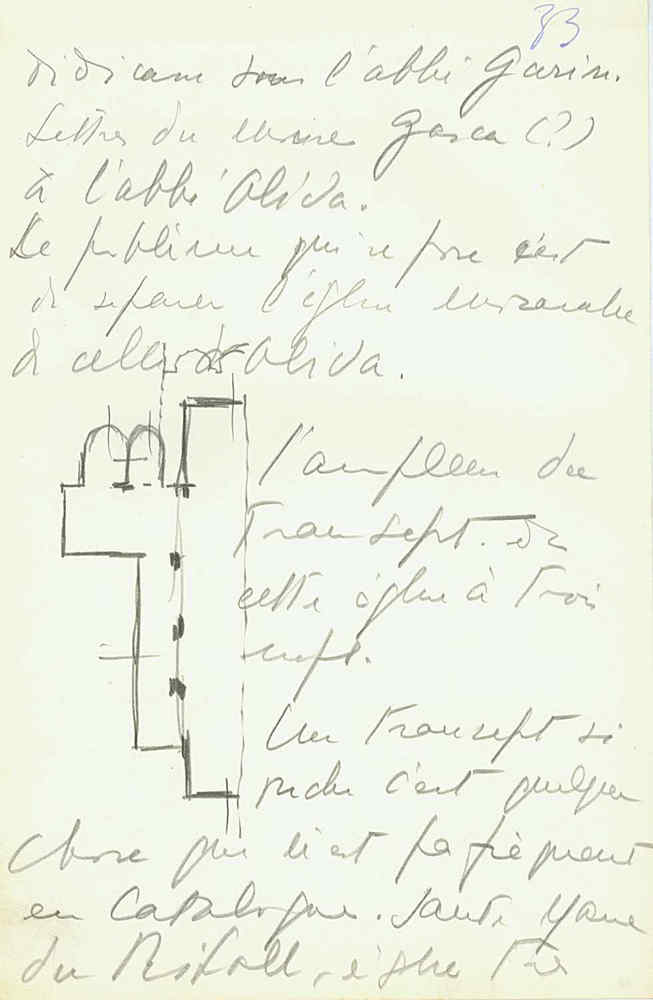 33
sous l'abbé Garin.
Lettres du moine Garca (?)
à l'abbé Oliva.
Le problème qui se pose c'est
de séparer l'église mozarabe
de celle d'Oliva.
l'ampleur du
transept. de
cette église à trois
nefs.
Un transept si
riche c'est quelque
chose qui n'est pas fréquent
en Catalogne. Sainte Marie
du Ripoll, église très